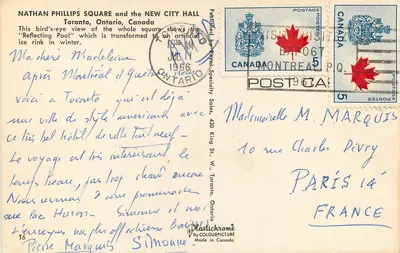 NATHAN PHILLIPS SQUARE and the NEW CITY HALL
Toronto, Ontario, Canada
This bird's-eye view of the whole square shows the
"Reflecting Pool" which is transformed to an artificial
ice rink in winter.
Ma chère Madeleine
après Montréal et Québec
voici à Toronto qui est déjà
une ville de style américain avec
ce très bel hôtel de ville tout neuf
Le voyage est très intéressant, le
temps beau, pas trop chaud encore
Nous avons une promenade
sur lac Huron. Simone et moi
t'envoyons affectueux baisers
Pierre Marquis Simone
T6
Published by Royal Specialty Sales, 430 King St. W., Toronto, Ontario
Plastichrome
by COLOURPICTURE
Made in Canada
TORONTO
1966
ONTARIO
CANADA
POSTES POSTAGE
5
CANADA
POSTES POSTAGE
5
VISIT
EXPO67
MONTREAL P.Q.
1967
POST CA
Mademoiselle M. MARQUIS
10 rue Charles Divry
PARIS 14e
FRANCE